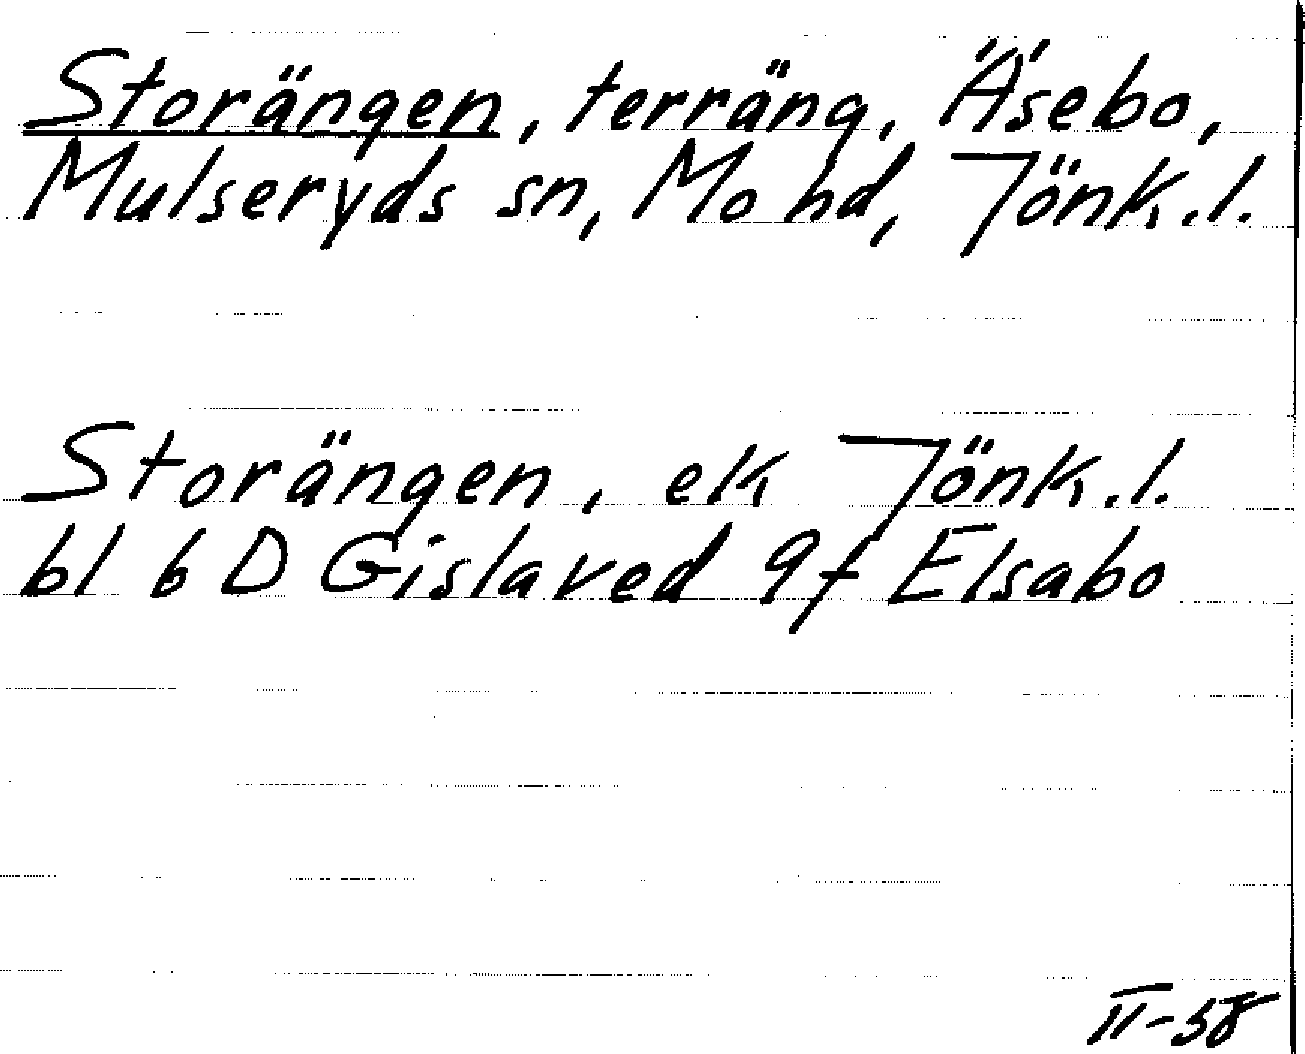 Storängen, terräng, Äsebo,
Mulseryds sn, Mo hd, Jönk.l.
Storängen, ek Jönk.l.
bl 6 D Gislaved 9f Elsabo
II-58